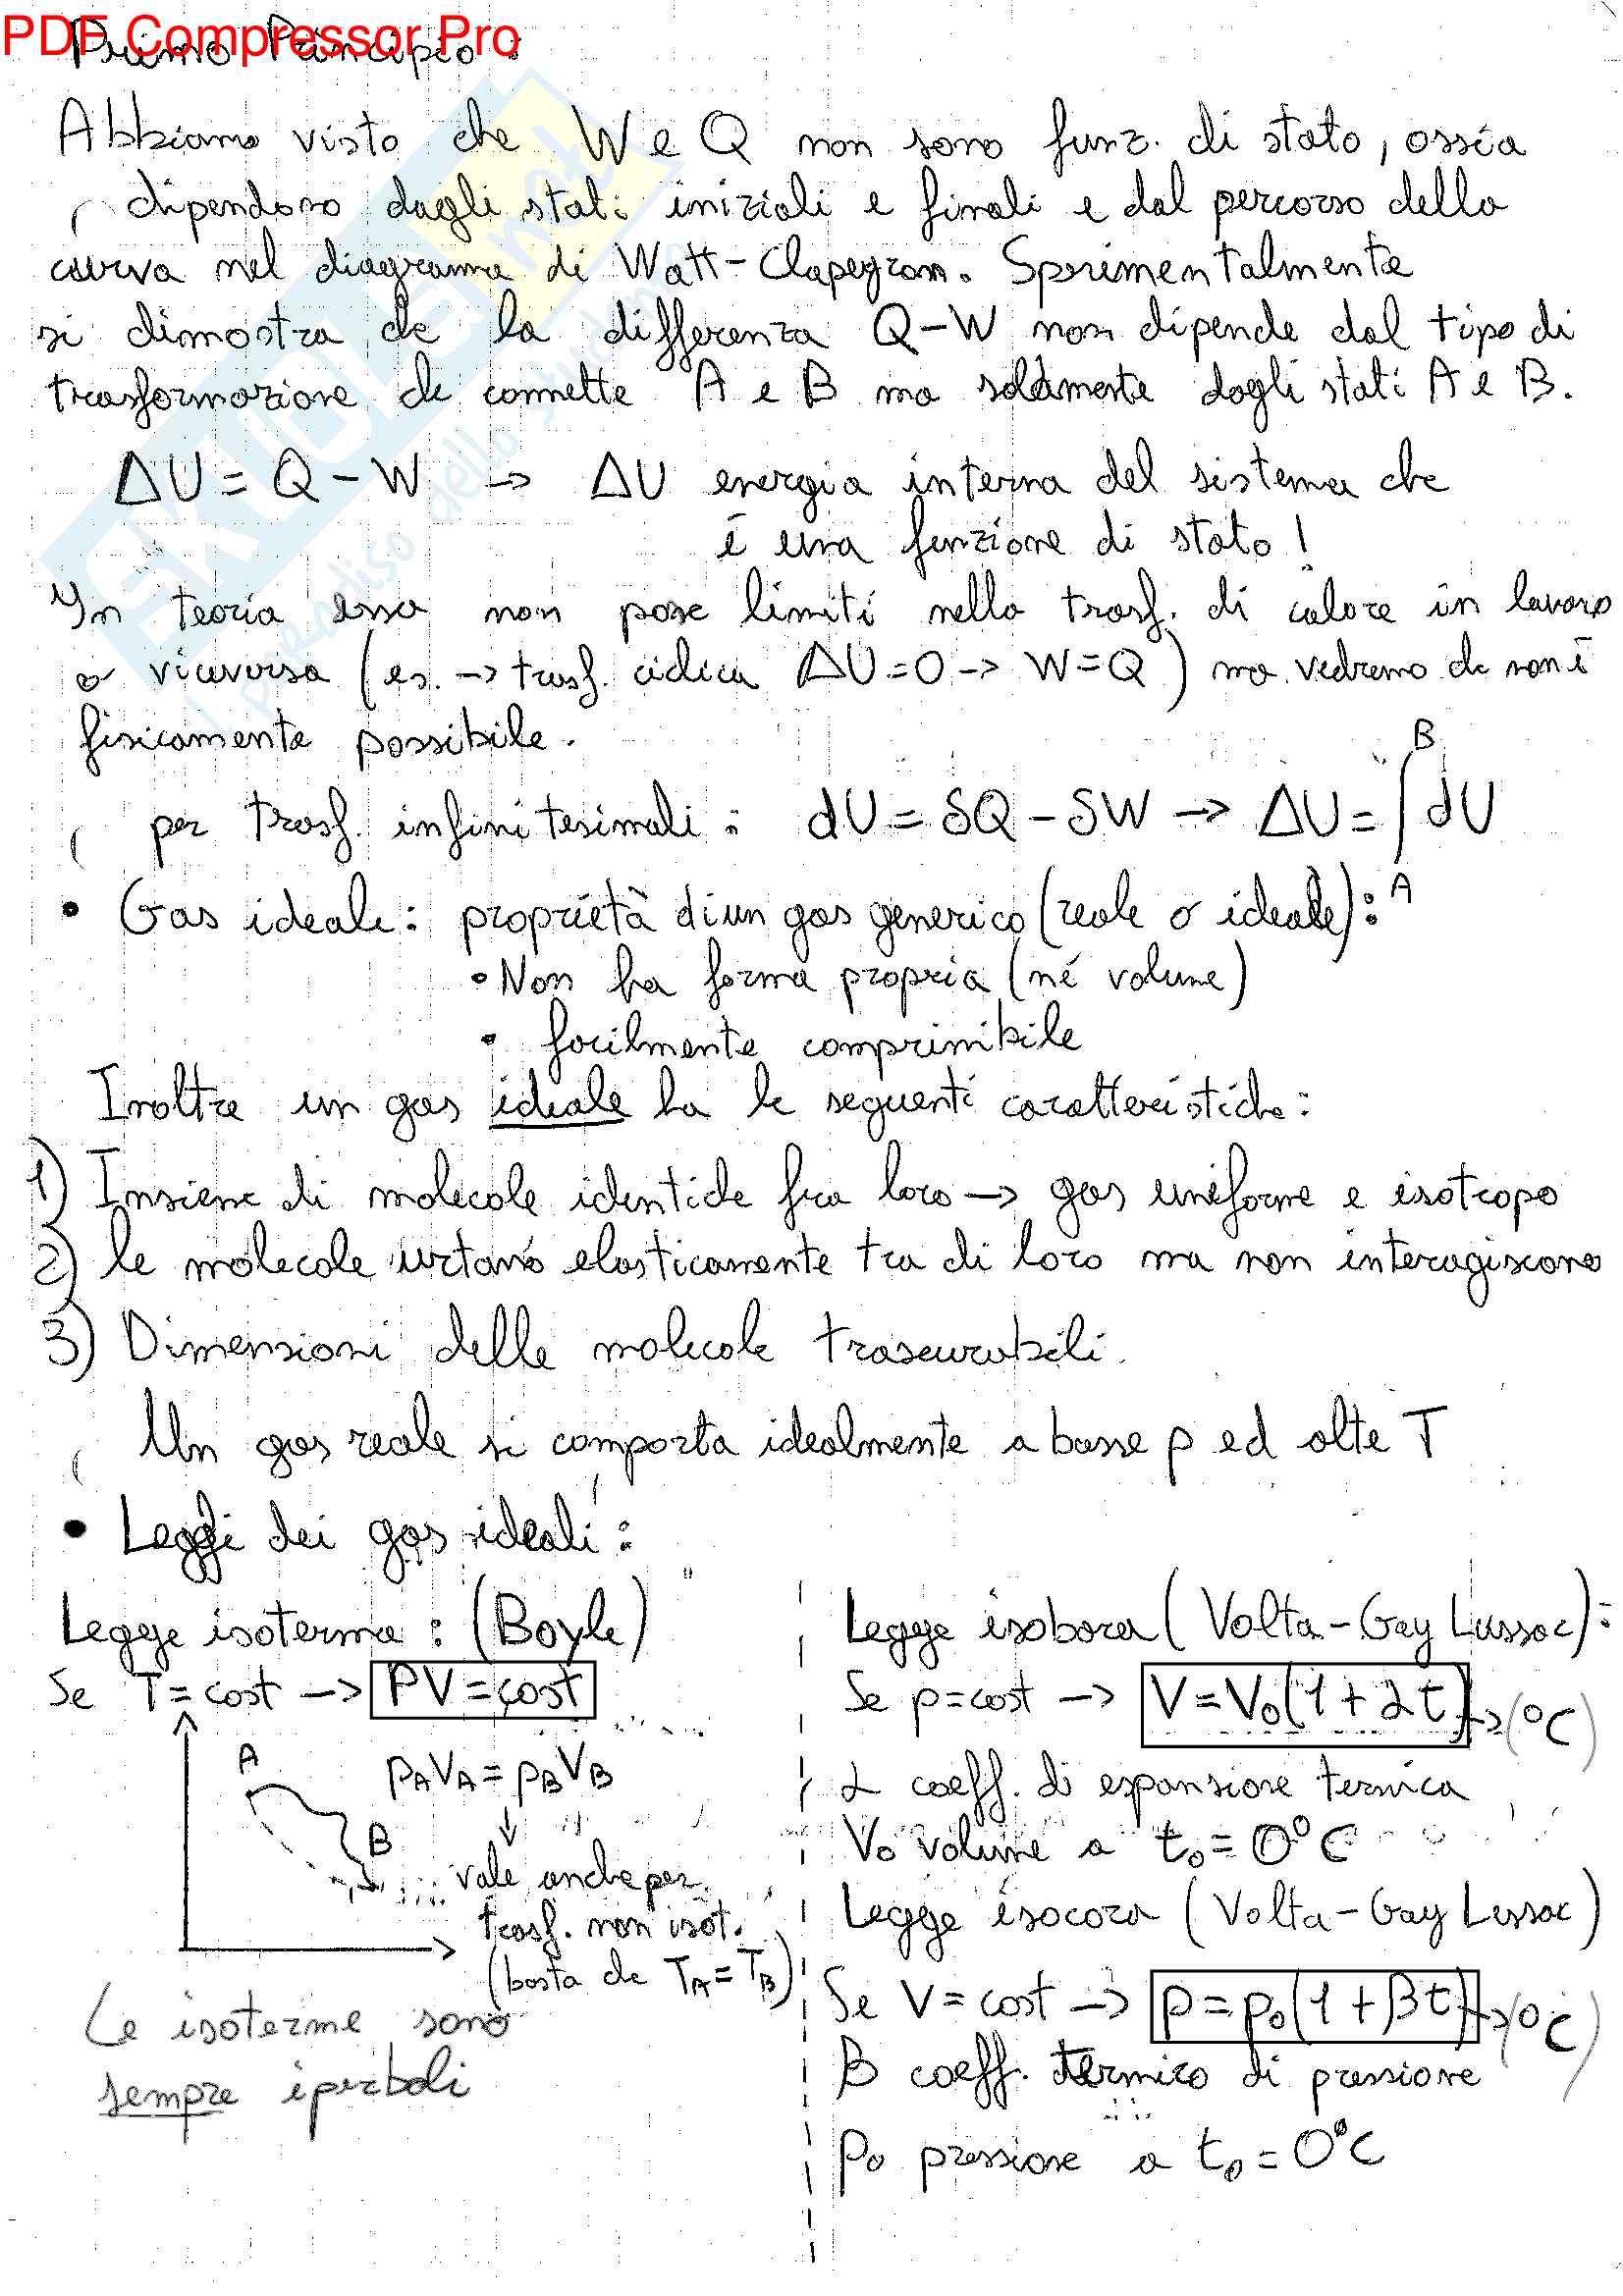 PDF Compressor Pro
Primo Principio:
Abbiamo visto che W e Q non sono funz. di stato, ossia
dipendono dagli stati iniziali e finali e dal percorso della
curva nel diagramma di Watt-Clapeyron. Sperimentalmente
si dimostra che la differenza Q-W non dipende dal tipo di
trasformazione che connette A e B ma solamente dagli stati A e B.
ΔU = Q - W → ΔU energia interna del sistema che
è una funzione di stato!
In teoria essa non pone limiti nella trasf. di calore in lavoro
o viceversa (es. → trasf. ciclica ΔU=0 → W=Q) ma vedremo che non è
fisicamente possibile.
per trasf. infinitesimali: dU = δQ - δW → ΔU = ∫_A^B dU
• Gas ideale: proprietà di un gas generico (reale o ideale):
• Non ha forma propria (né volume)
• facilmente comprimibile
Inoltre un gas ideale ha le seguenti caratteristiche:
1) Insieme di molecole identiche fra loro → gas uniforme e isotropo
2) le molecole urtano elasticamente tra di loro ma non interagiscono
3) Dimensioni delle molecole trascurabili.
Un gas reale si comporta idealmente a basse p ed alte T
• Leggi dei gas ideali:
Legge isoterma: (Boyle)
Se T = cost → PV = cost
A
B
pAVA = pBVB
↓
vale anche per
trasf. non isot.
(basta che TA = TB)
Le isoterme sono
sempre iperboli
Legge isobara (Volta-Gay Lussac):
Se p = cost → V = V0(1+αt) → (°C)
α coeff. di espansione termica
V0 volume a t0 = 0°C
Legge isocora (Volta-Gay Lussac)
Se V = cost → p = p0(1+βt) → (°C)
β coeff. termico di pressione
p0 pressione a t0 = 0°C